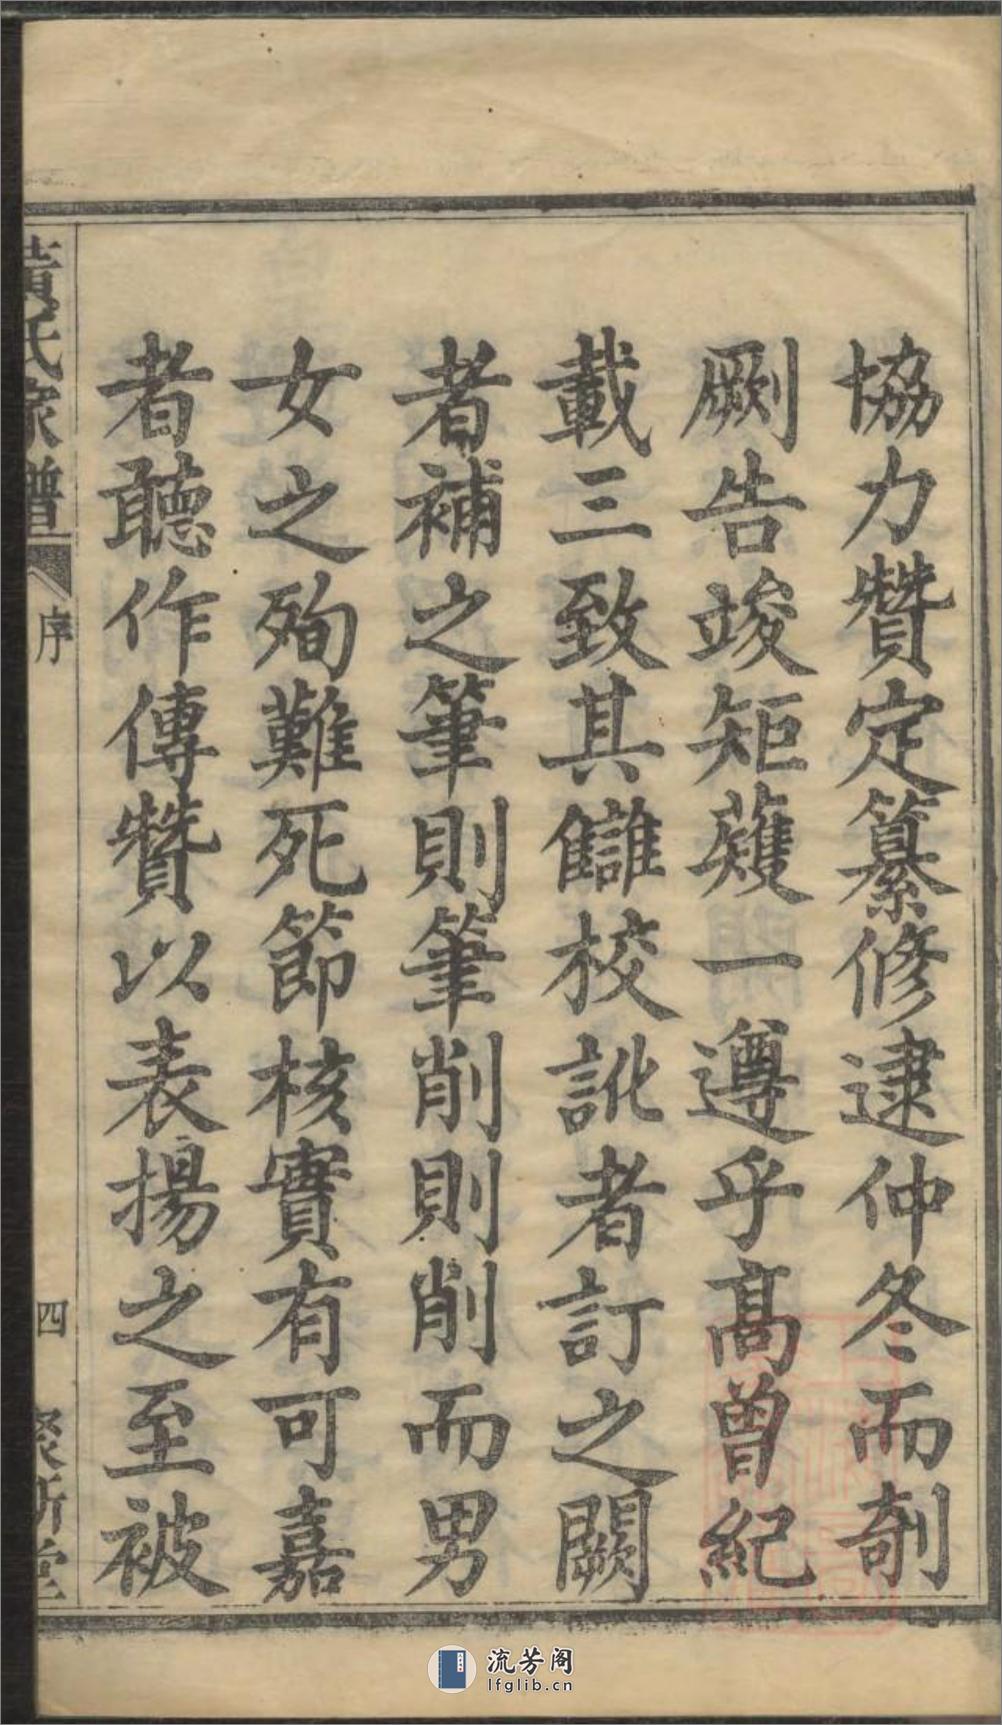 協力贊定纂修逮仲冬而剞
劂告竣矩蒦一遵乎高曾紀
載三致其讎校訛者訂之闕
者補之筆則筆削則削而男
女之殉難死節核實有可嘉
者聽作傳贊以表揚之至被
黃氏家譜
序
四
聚斯堂
流芳阁
lfglib.cn